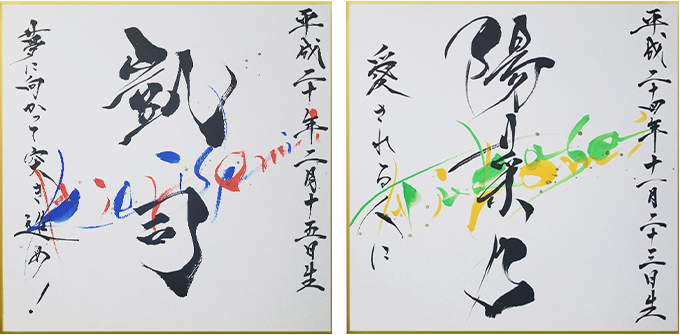 平成二十年二月十五日生
凱司
夢に向かって突き進め!
平成二十四年十一月二十三日生
陽菜乃
愛される人に